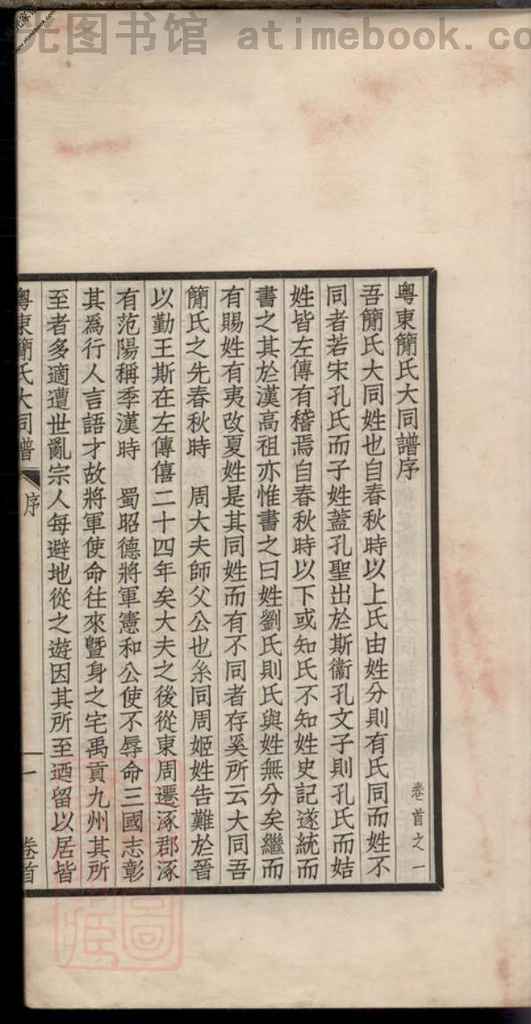 光图书馆 atimebook.co
粵東簡氏大同譜序
卷首之一
吾簡氏大同姓也自春秋時以上氏由姓分則有氏同而姓不
同者若宋孔氏而子姓蓋孔聖出於斯衞孔文子則孔氏而姞
姓皆左傳有稽焉自春秋時以下或知氏不知姓史記遂統而
書之其於漢高祖亦惟書之曰姓劉氏則氏與姓無分矣繼而
有賜姓有夷改夏姓是其同姓而有不同者存奚所云大同吾
簡氏之先春秋時 周大夫師父公也糸同周姬姓告難於晉
以勤王斯在左傳僖二十四年矣大夫之後從東周遷涿郡涿
有范陽稱季漢時 蜀昭德將軍憲和公使不辱命三國志彰
其爲行人言語才故將軍使命往來暨身之宅禹貢九州其所
至者多適遭世亂宗人每避地從之遊因其所至迺留以居皆
粵東簡氏大同譜 序 一 卷首